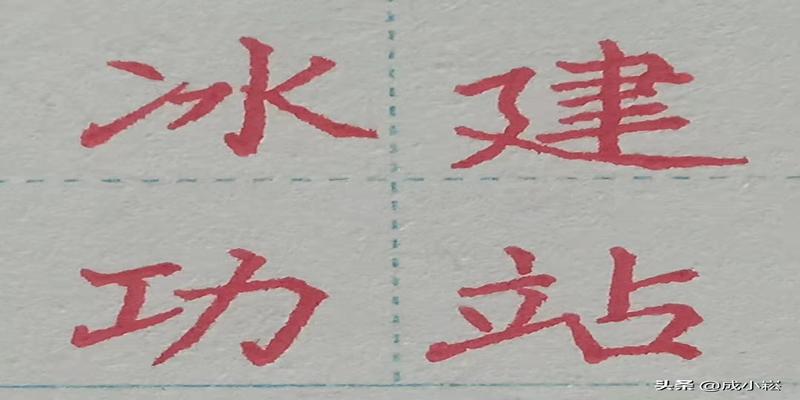 冰建
功站
头条 @成小崧